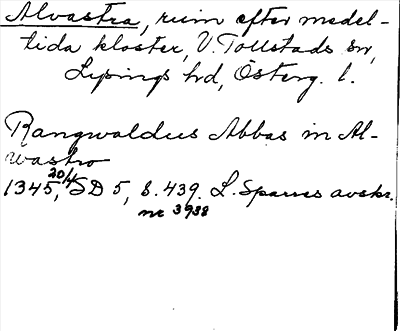 Alvastra, ruin efter medel-
tida kloster, V. Tollstads sn,
Lysings hd, Österg. l.
Rangwaldus Abbas in Al-
wastro
1345 20/4, SD 5, s. 439. L. Sparres avskr.
nr 3938